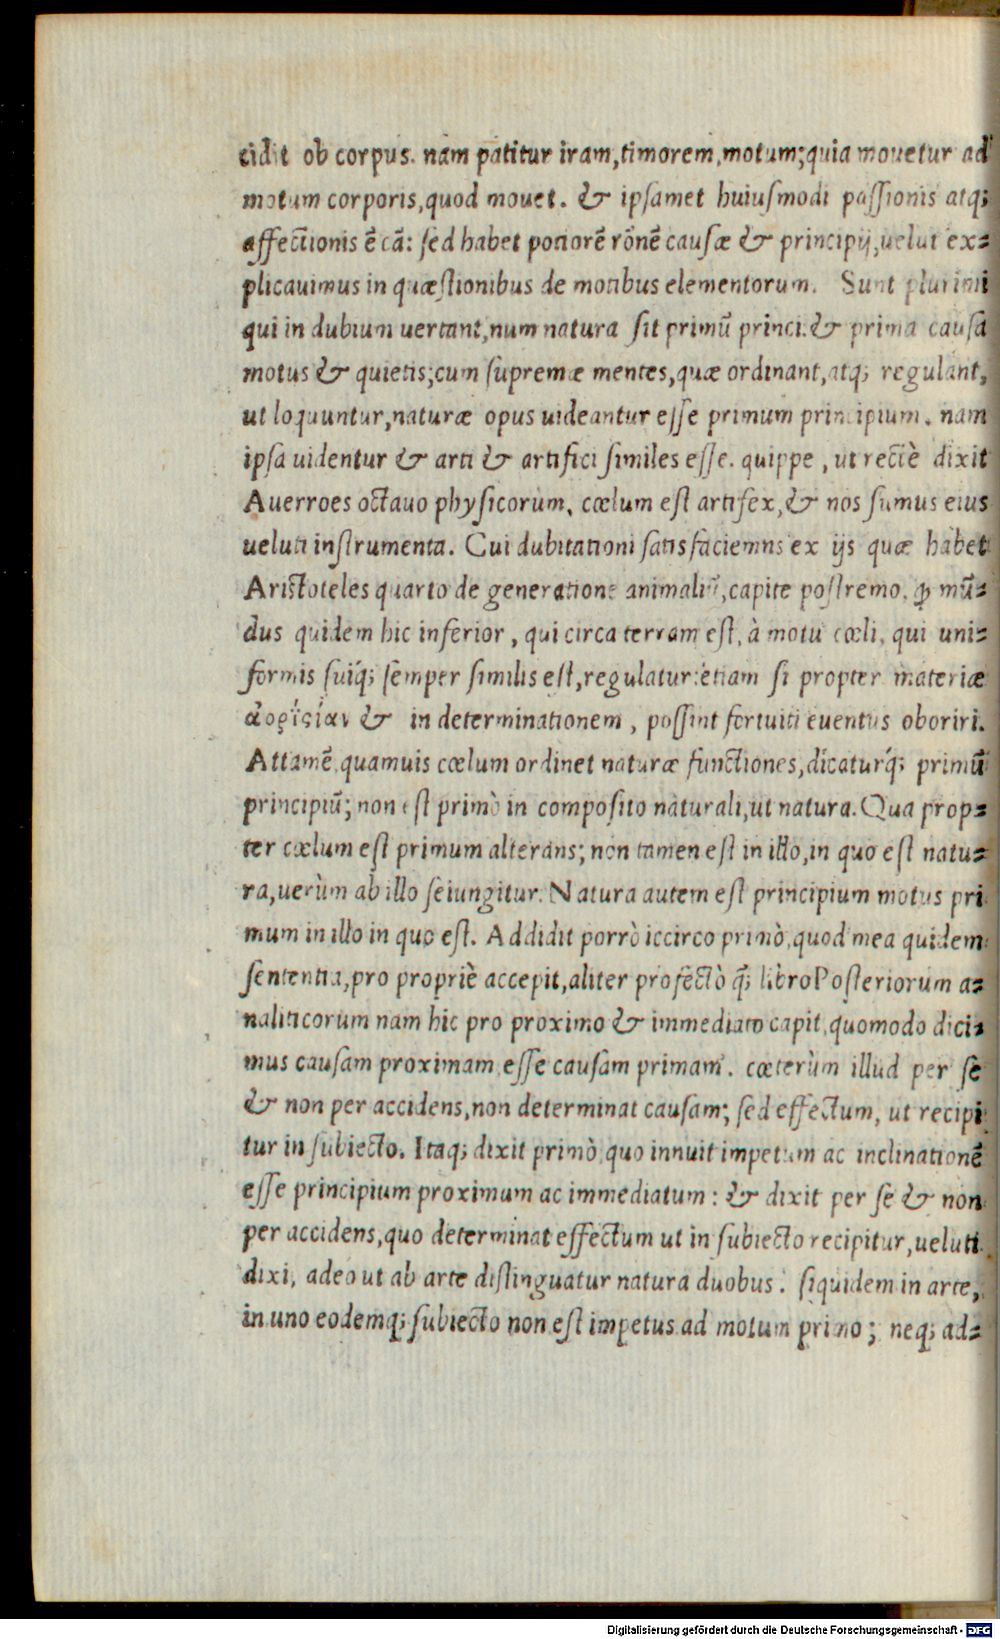 cidit ob corpus. nam patitur iram,timorem,motum;quia mouetur ad
motum corporis,quod mouet. & ipsamet huiusmodi passionis atq;
affectionis ē cā: sed habet potiorē rōnē causæ & principij,uelut ex-
plicauimus in quæstionibus de motibus elementorum. Sunt plurimi
qui in dubium uertant,num natura sit primū princi. & prima causa
motus & quietis;cum supremæ mentes,quæ ordinant,atq; regulant,
ut loquuntur,naturæ opus uideantur esse primum principium. nam
ipsa uidentur & arti & artifici similes esse. quippe , ut rectè dixit
Auerroes octauo physicorum, cœlum est artifex,& nos sumus eius
ueluti instrumenta. Cui dubitationi satisfaciemns ex ijs quæ habet
Aristoteles quarto de generatione animaliū,capite postremo. ꝙ mū-
dus quidem hic inferior , qui circa terram est, à motu cœli, qui uni-
formis suiq́; semper similis est,regulatur:etiam si propter materiæ
ἀοριςίαν & in determinationem , possint fortuiti euentus oboriri.
Attamē quamuis cœlum ordinet naturæ functiones,dicaturq́; primū
principiū; non est primò in composito naturali,ut natura. Qua prop-
ter cælum est primum alterans; non tamen est in illo,in quo est natu-
ra,uerùm ab illo seiungitur. Natura autem est principium motus pri
mum in illo in quo est. Addidit porrò iccirco primò,quod mea quidem
sententia,pro propriè accepit,aliter profectò q̃; libro Posteriorum a-
naliticorum nam hic pro proximo & immediato capit,quomodo dici-
mus causam proximam esse causam primam. cæterùm illud per se
& non per accidens,non determinat causam; sed effectum, ut recipi
tur in subiecto. Itaq; dixit primò quo innuit impetum ac inclinationē
esse principium proximum ac immediatum : & dixit per se & non
per accidens,quo determinat effectum ut in subiecto recipitur,ueluti
dixi, adeo ut ab arte distinguatur natura duobus. siquidem in arte,
in uno eodemq; subiecto non est impetus ad motum primo ; neq; ad-
Digitalisierung gefördert durch die Deutsche Forschungsgemeinschaft - DFG